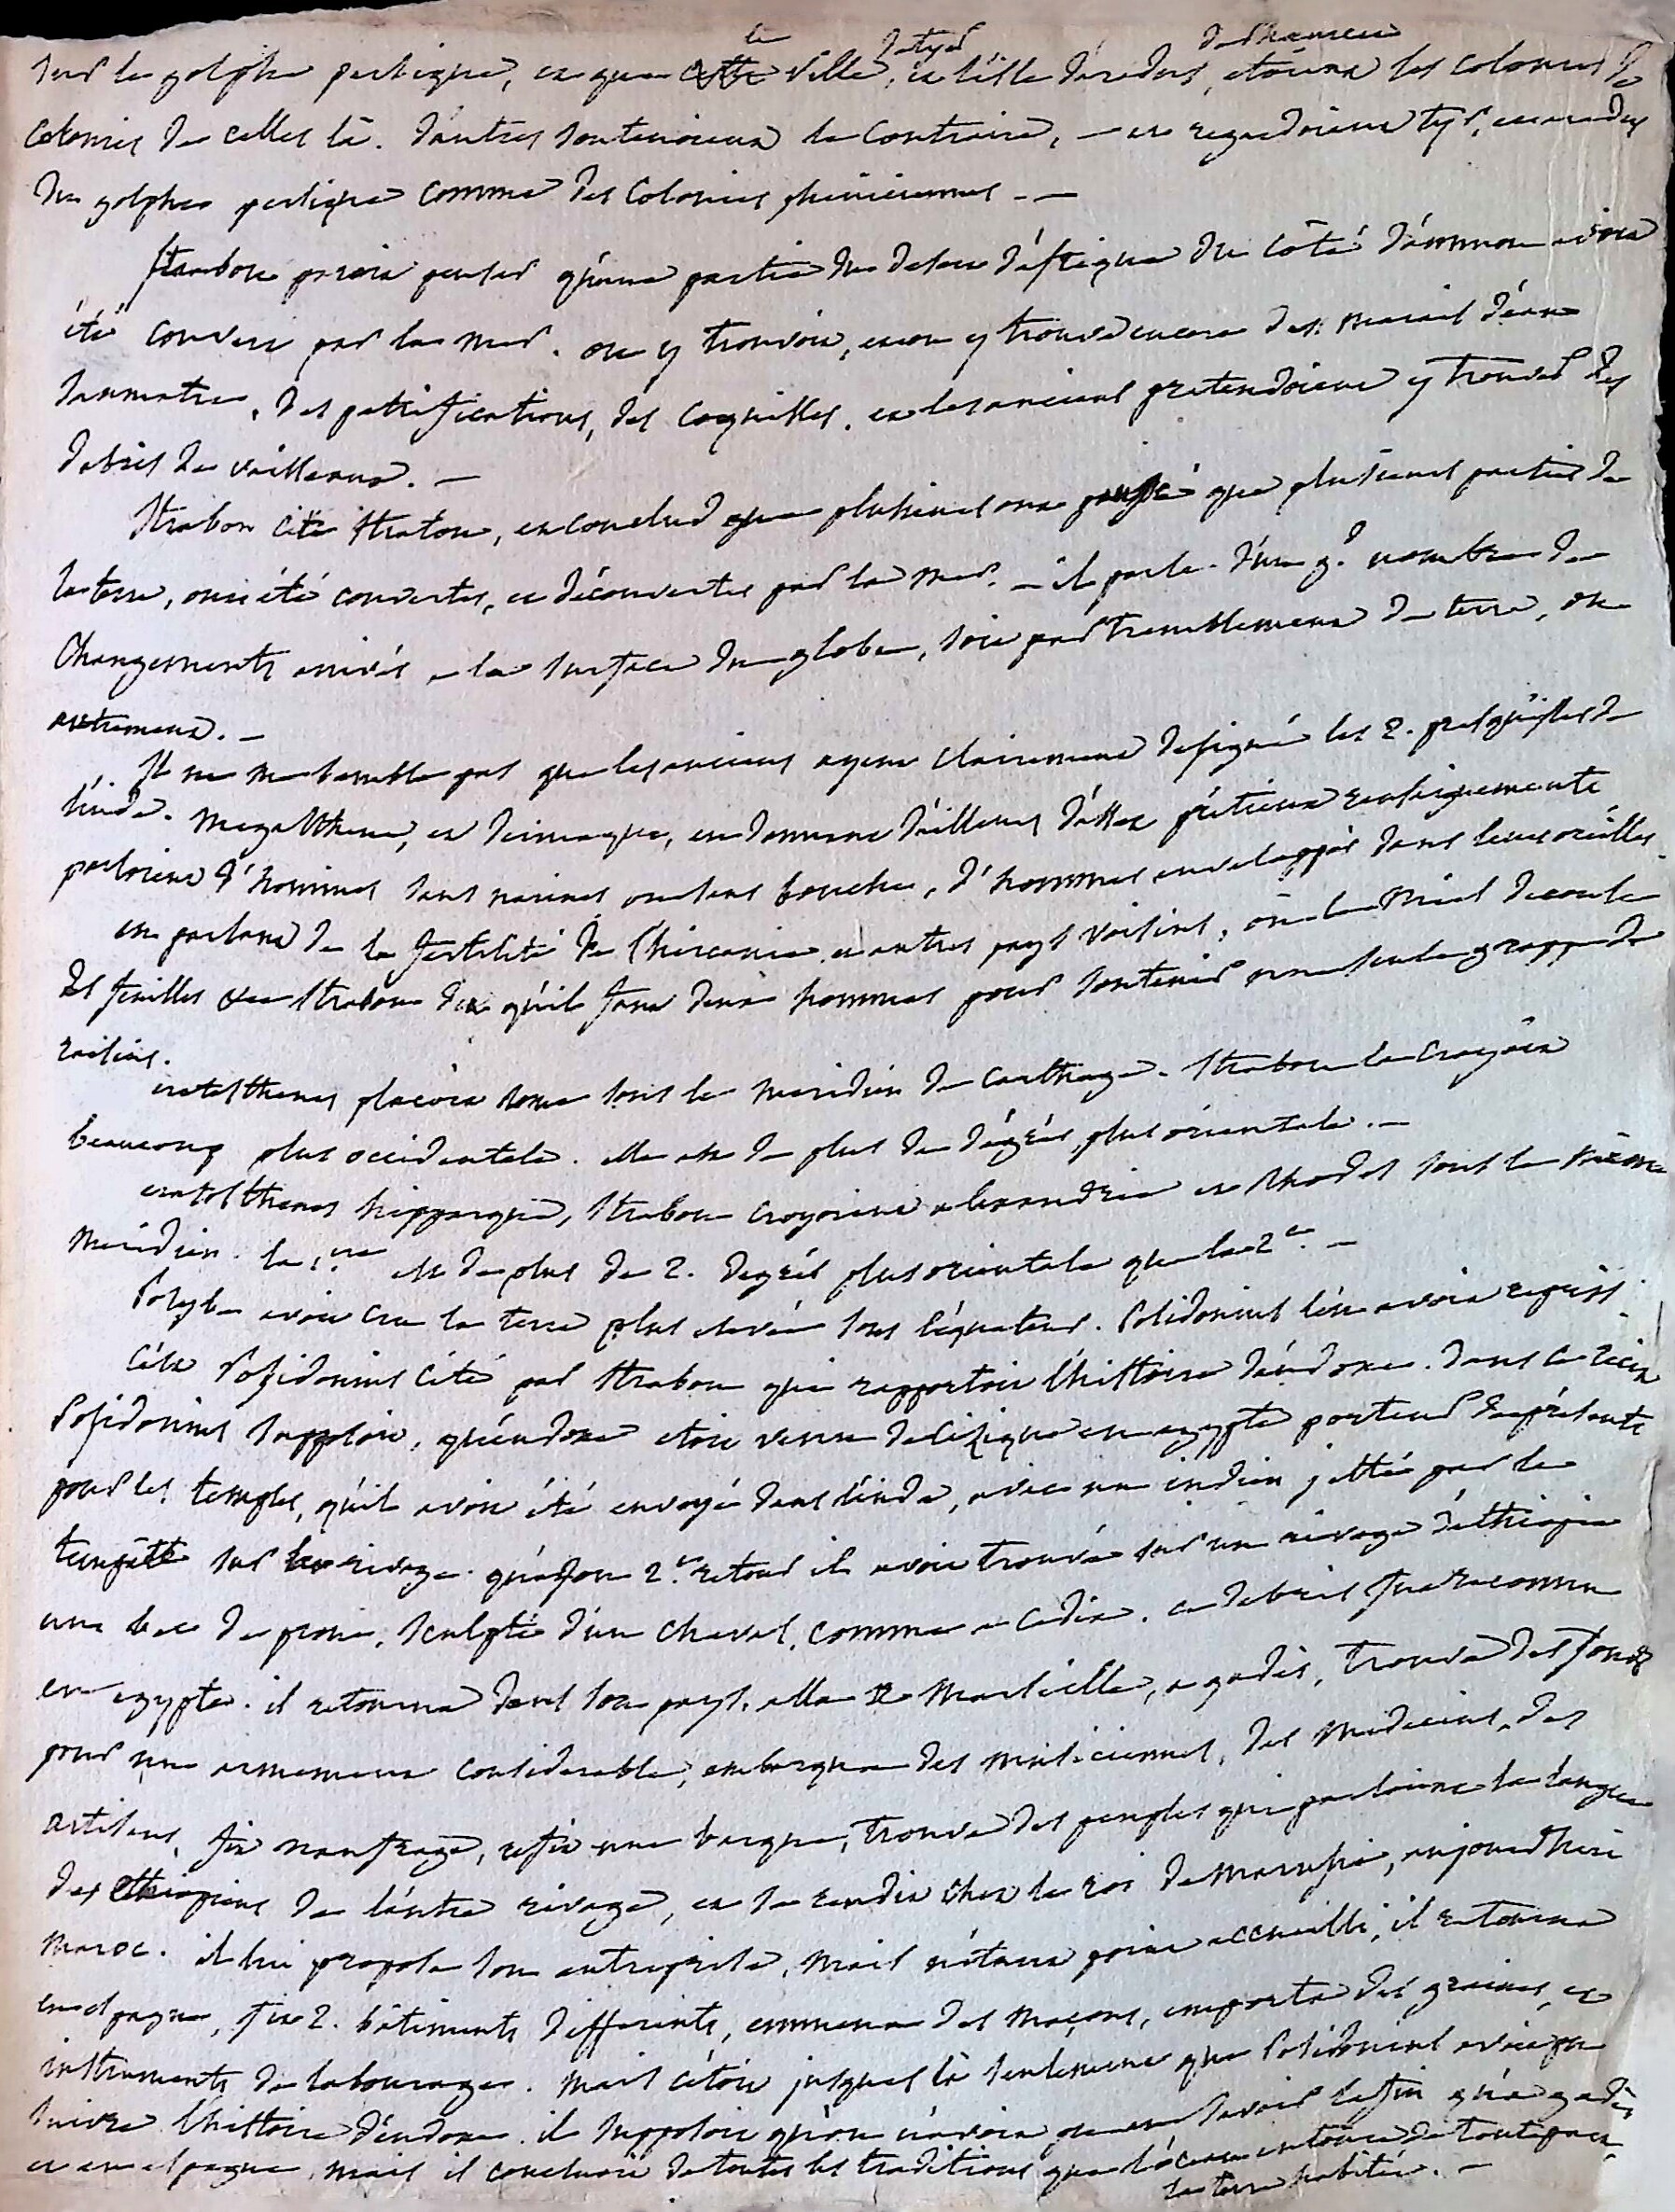 sur le golphe persique, et que la ville de tyr, et l'isle d'aradus de phenicie, étoient les colonies de
colonies de celles là. d'autres soutenoient le contraire, - et regardoient tyr, et aradus
du golphe persique comme des colonies pheniciennes. -
strabon paroit penser qu'une partie du desert d'afrique du côté d'ammon avoit
été couvert par la mer. on y trouvoit, et on y trouve encore des marais d'eau
saumatre, des petrifications, des coquilles. et les anciens pretendoient y trouver des
debris de vaisseaux. -
Strabon cite straton, et conclud que plusieurs ont pensé que plusieurs parties de
la terre, ont été couvertes, et découvertes par la mer. - il parle d'un gd nombre de
changements arrivés a la surface du globe, soit par tremblement de terre, ou
autrement. -
Il ne me semble pas que les anciens ayent clairement designé les 2. presqu'isles de
l'inde. megasthene, et deimaque, en donnant d'ailleurs d'assez prétieux renseignements
parloient d'hommes sans narines ou sans bouche, d'hommes enveloppés dans leurs oreilles.
en parlant de la fertilité de l'hircanie, et autres pays voisins, où le miel decoule
des feuilles strabon dit qu'il faut deux hommes pour soutenir une seule grappe de
raisins.
eratosthenes plaçoit rome sous le meridien de carthage. strabon la croyoit
beaucoup plus occidentale. elle est de plus de degrés plus orientale. -
eratosthenes hipparque, strabon croyoient alexandrie et rhodes sous le même
meridien. la 1.ere est de plus de 2. degrés plus orientale que la 2.e -
Polybe avoit cru la terre plus elevée sous l'équateur. Posidonius l'en avoit repris.
c'est Posidonius cité par strabon qui rapportoit l'histoire d'eudoxe. dans ce récit
Posidonius supposoit, qu'eudoxe etoit venu de cizique en egypte porteur de présents
pour les temples, qu'il avoit été envoyé dans l'inde, avec un indien jetté par la
tempête sur le rivage. qu'a son 2.e retour il avoit trouvé sur un rivage d'ethiopie
un bec de proue, sculpté d'un cheval, comme a cadix. ce debris fut reconnu
en egypte. il retourna dans son pays, alla a Marseille, a gadès, trouva des fonds
pour un armement considerable, embarqua des musiciennes, des medecins, des
artisans, fit naufrage, refit une barque, trouva des peuples qui parloient la langue
des ethiopiens de l'autre rivage, et se rendit chez le roi de Maurusie, aujourd'hui
maroc. il lui proposa son entreprise, mais n'étant point accueilli, il retourna
en espagne, fit 2. bâtiments differents, emmena des maçons, emporta des graines, et
instruments de labourage. mais c'étoit jusques là seulement que Posidonius avoit pu
suivre l'histoire d'eudoxe. il supposoit qu'on n'avoit pu en savoir la fin qu'a gadès
et en espagne, mais il concluoit de toutes les traditions que l'ocean entoure de toute part
la terre habitée. -